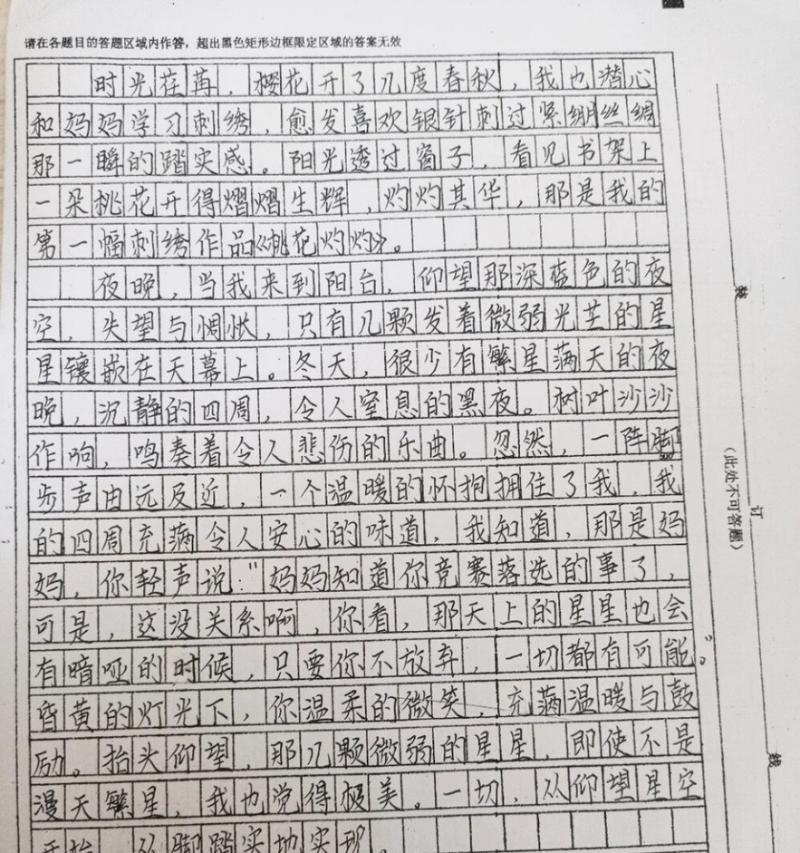 请在各题目的答题区域内作答，超出黑色矩形边框限定区域的答案无效
时光荏苒，樱花开了几度春秋，我也潜心
和妈妈学习刺绣，愈发喜欢银针刺过紧绷丝绸
那一瞬的踏实感。阳光透过窗子，看见书架上
一朵桃花开得熠熠生辉，灼灼其华，那是我的
第一幅刺绣作品《桃花灼灼》。
夜晚，当我来到阳台，仰望那深蓝色的夜
空，失望与惆怅，只有几颗发着微弱光芒的星
星镶嵌在天幕上。冬天，很少有繁星满天的夜
晚，沉静的四周，令人窒息的黑夜。树叶沙沙
作响，鸣奏着令人悲伤的乐曲。忽然，一阵脚
步声由远及近，一个温暖的怀抱拥住了我，我
的四周充满令人安心的味道，我知道，那是妈
妈，你轻声说："妈妈知道你竞赛落选的事了，
可是，这没关系啊，你看，那天上的星星也会
有暗哑的时候，只要你不放弃，一切都有可能。"
昏黄的灯光下，你温柔的微笑，充满温暖与鼓
励。抬头仰望，那几颗微弱的星星，即使不是
漫天繁星，我也觉得极美。一切，从仰望星空
开始，从脚踏实地实现。
（此处不可答题）
装
订
线